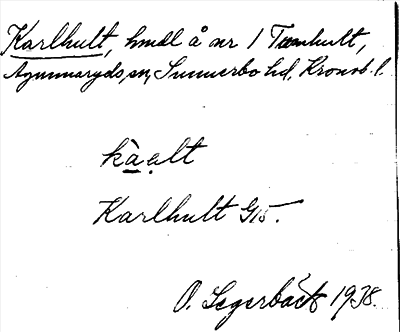 Karlhult, hmdl å nr 1 Tunhult,
Agunnaryds sn, Sunnerbo hd, Kronob. l.
kàalt
Karlhult G15.
O. Segerbäck 1938.